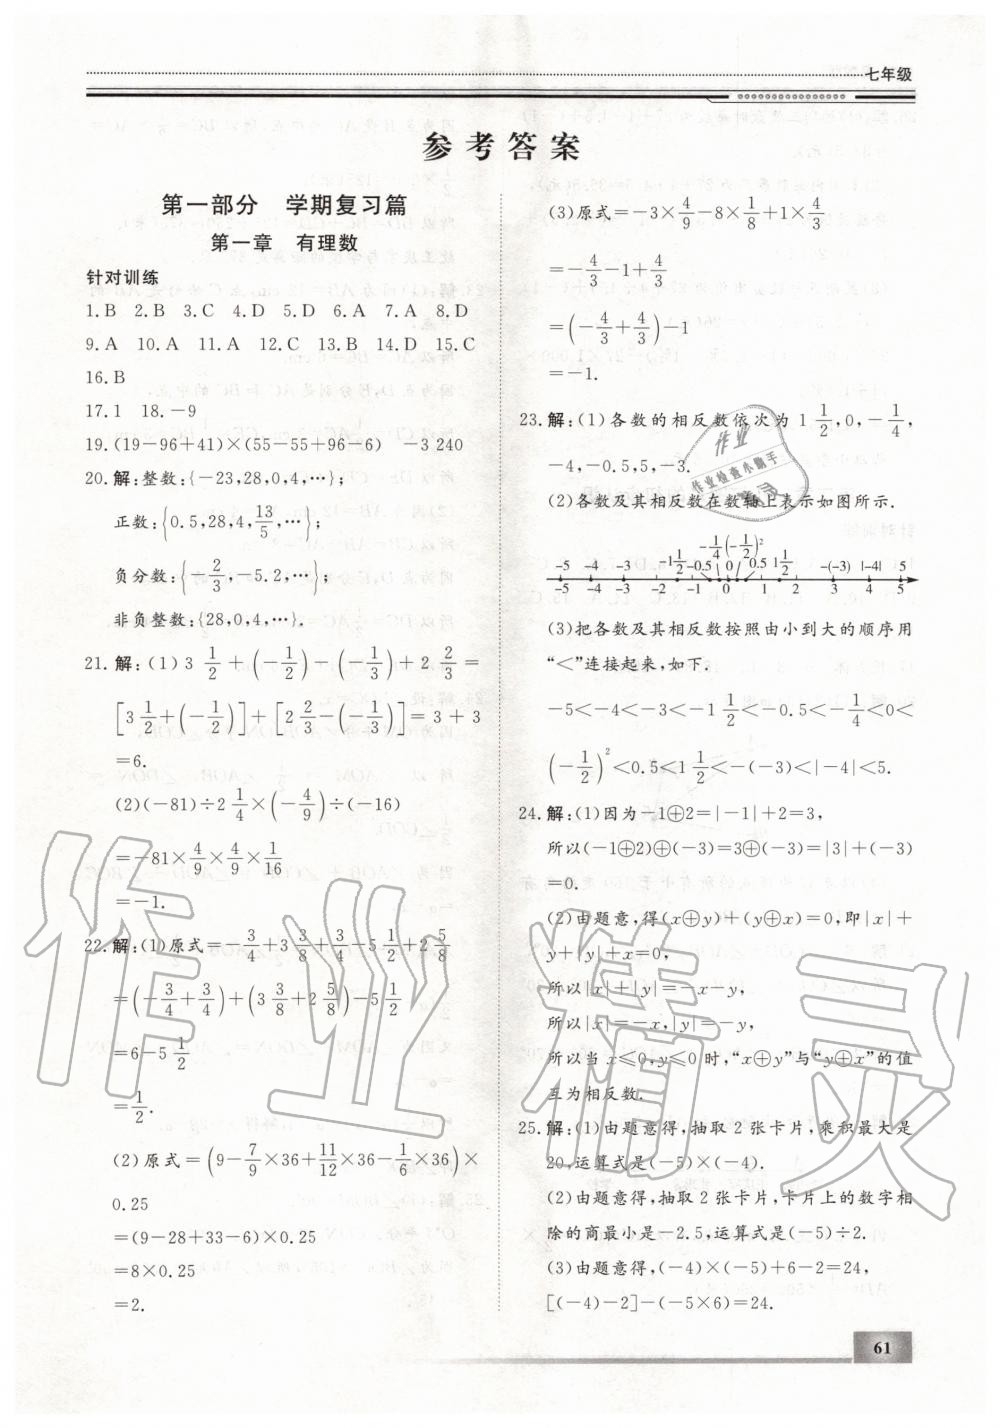 七年级
参考答案
第一部分　学期复习篇
第一章　有理数
针对训练
1.B 2.B 3.C 4.D 5.D 6.A 7.A 8.D
9.A 10.A 11.A 12.C 13.B 14.D 15.C
16.B
17.1 18.－9
19.(19－96＋41)×(55－55＋96－6)　－3 240
20.解:整数:{－23,28,0,4,…};
正数:{0.5,28,4,13/5,…};
负分数:{－2/3,－5.2,…};
非负整数:{28,0,4,…}.
21.解:(1)3 1/2＋(－1/2)－(－1/3)＋2 2/3＝
[3 1/2＋(－1/2)]＋[2 2/3－(－1/3)]＝3＋3
＝6.
(2)(－81)÷2 1/4×(－4/9)÷(－16)
＝－81×4/9×4/9×1/16
＝－1.
22.解:(1)原式＝－3/4＋3 3/8＋3/4－5 1/2＋2 5/8
＝(－3/4＋3/4)＋(3 3/8＋2 5/8)－5 1/2
＝6－5 1/2
＝1/2.
(2)原式＝(9－7/9×36＋11/12×36－1/6×36)×
0.25
＝(9－28＋33－6)×0.25
＝8×0.25
＝2.
(3)原式＝－3×4/9－8×1/8＋1×4/3
＝－4/3－1＋4/3
＝(－4/3＋4/3)－1
＝－1.
23.解:(1)各数的相反数依次为1 1/2,0,－1/4,
－4,－0.5,5,－3.
(2)各数及其相反数在数轴上表示如图所示.
－5 －4 －3 －1 1/2 －0.5 －1/4 0 (－1/2)² 0.5 1 1/2 －(－3) |－4| 5
－5 －4 －3 －2 －1 0 1 2 3 4 5
(3)把各数及其相反数按照由小到大的顺序用
“＜”连接起来,如下.
－5＜－4＜－3＜－1 1/2＜－0.5＜－1/4＜0＜
(－1/2)²＜0.5＜1 1/2＜－(－3)＜|－4|＜5.
24.解:(1)因为－1⊕2＝|－1|＋2＝3,
所以(－1⊕2)⊕(－3)＝3⊕(－3)＝|3|＋(－3)
＝0.
(2)由题意,得(x⊕y)＋(y⊕x)＝0,即|x|＋
y＋|y|＋x＝0,
所以|x|＋|y|＝－x－y,
所以|x|＝－x,|y|＝－y,
所以当x≤0,y≤0时,“x⊕y”与“y⊕x”的值
互为相反数.
25.解:(1)由题意得,抽取2张卡片,乘积最大是
20,运算式是(－5)×(－4).
(2)由题意得,抽取2张卡片,卡片上的数字相
除的商最小是－2.5,运算式是(－5)÷2.
(3)由题意得,(－4)×(－5)＋6－2＝24,
[(－4)－2]－(－5×6)＝24.
61
作业精灵
作业
作业检查小助手